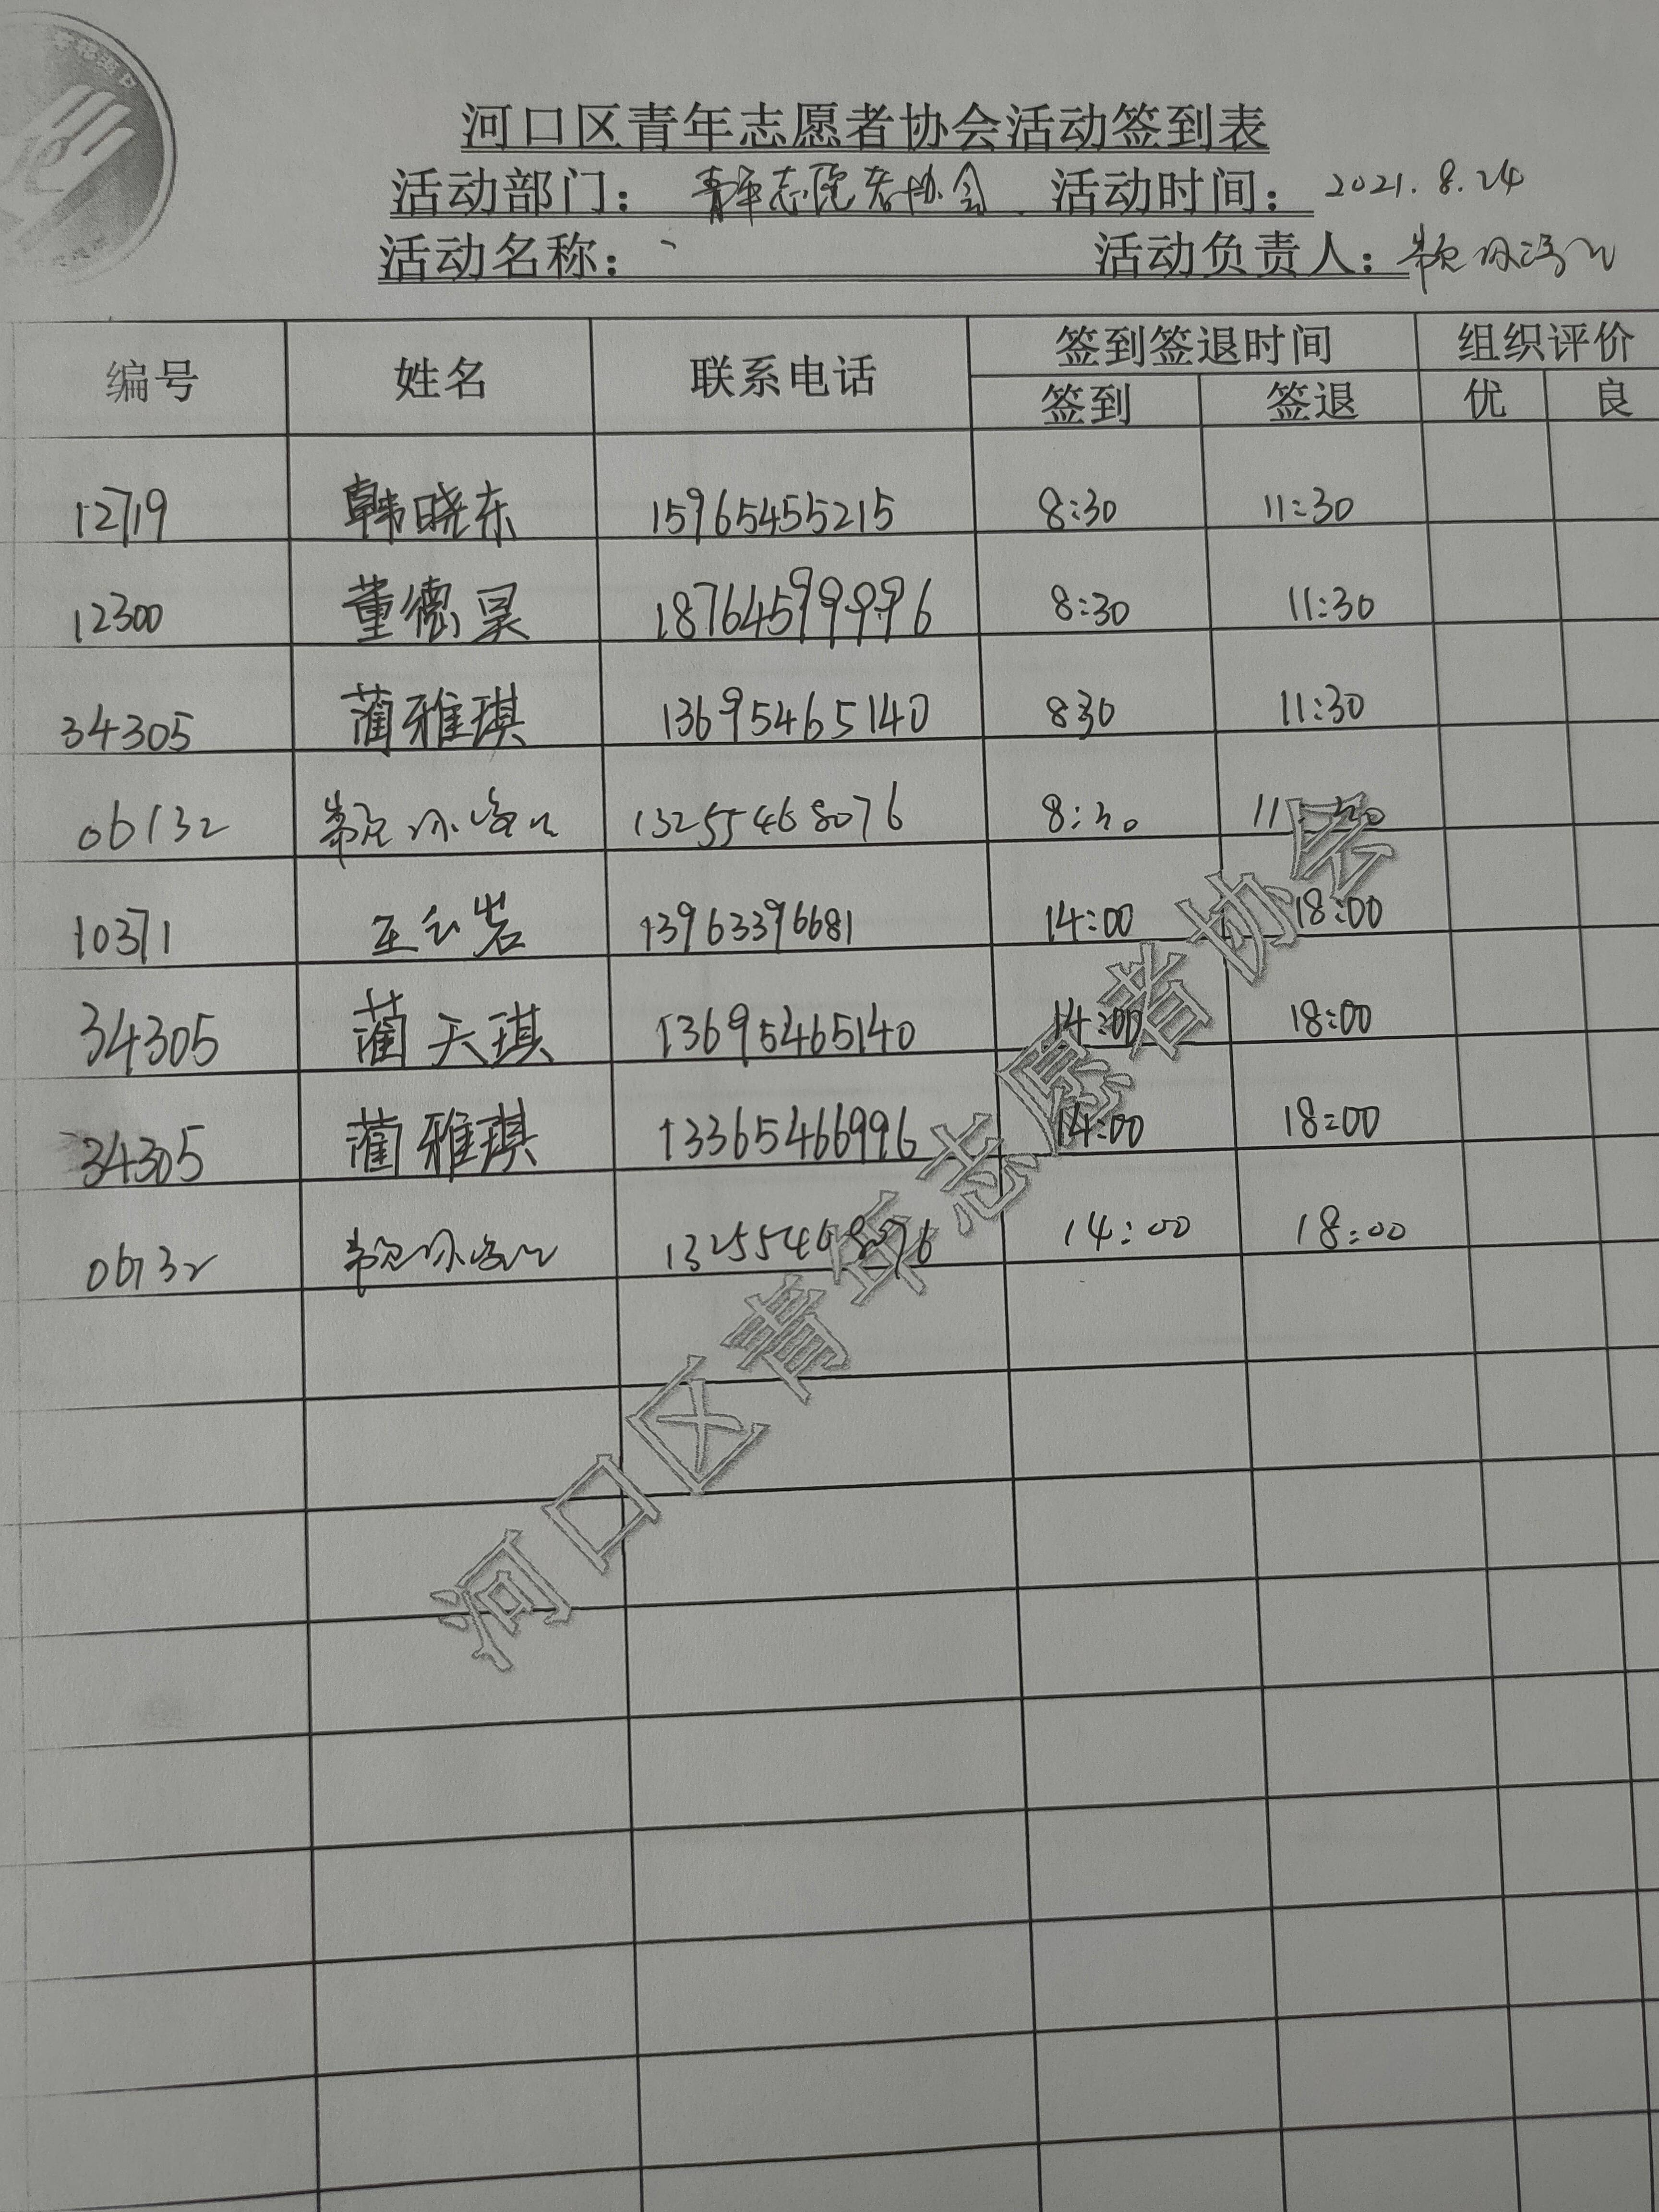 河口区青年志愿者协会活动签到表
活动部门： 青年志愿者协会 活动时间： 2021.8.24
活动名称： 活动负责人：
编号 姓名 联系电话 签到签退时间 组织评价
签到 签退 优 良
12719 韩晓东 15965455215 8:30 11:30
12300 董德昊 18764599996 8:30 11:30
34305 蔺雅琪 13695465140 830 11:30
06132 13255468076 8:30 11:30
10371 王 岩 13963396681 14:00 18:00
34305 蔺天琪 13695465140 14:00 18:00
34305 蔺雅琪 13365466996 14:00 18:00
06132 13255468076 14:00 18:00
河口区青年志愿者协会